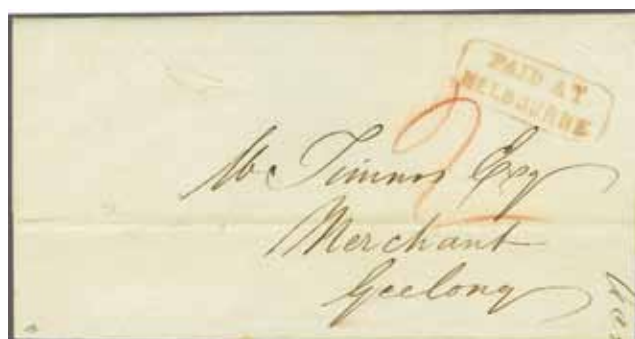 PAID AT
MELBOURNE
2
Esq
Merchant
Geelong